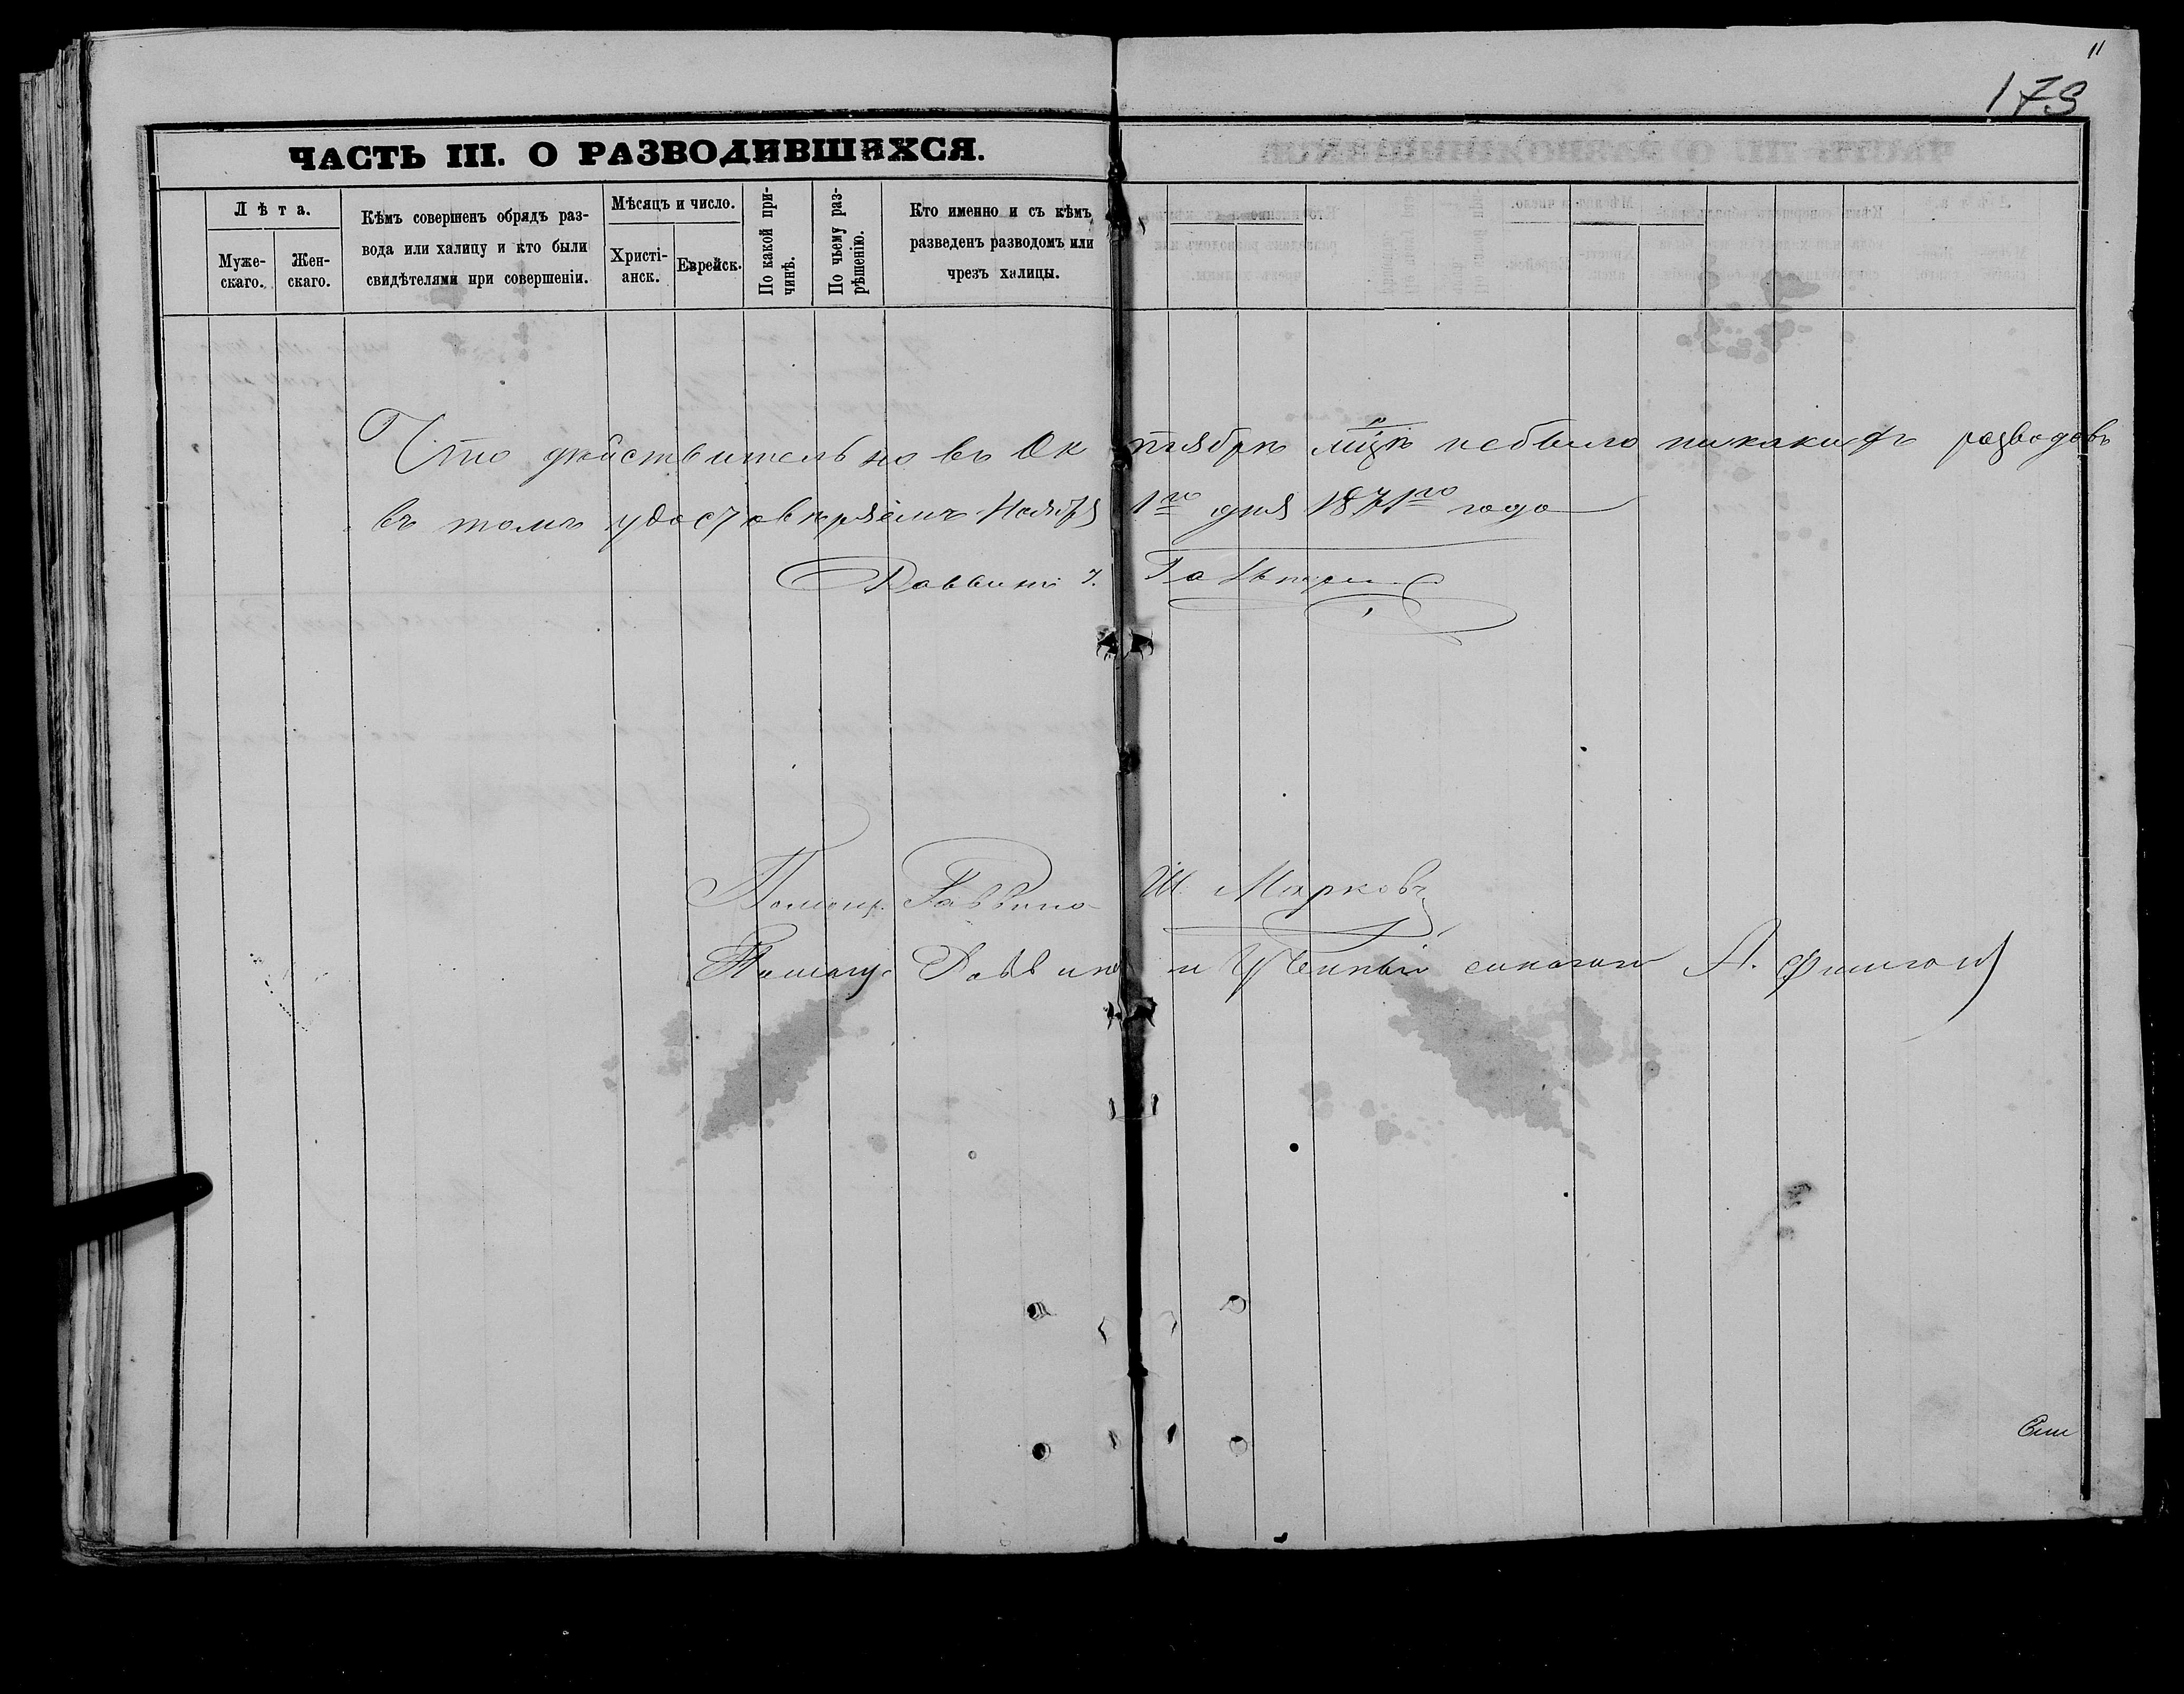 "
173
ЧАСТЬ III. О РАЗВОДИВШИХСЯ.
Лѣта.
Муже-
скаго.
Жен-
скаго.
Кѣмъ совершенъ обрядъ раз-
вода или халицу и кто были
свидѣтелями при совершеніи.
Мѣсяцъ и число.
Христі-
анск.
Еврейск.
По какой при-
чинѣ.
По чьему раз-
рѣшенію.
Кто именно и съ кѣмъ
разведенъ разводомъ или
чрезъ халицы.
Что дѣйствительно въ Октябрѣ мцѣ небыло никакихъ разводовъ
въ томъ удостовѣряемъ Ноября 1го дня 1871го года
Раввинъ
Помощ. Раввина Ш. Марковъ
Помощ. Раввина и Ученый синагоги А.